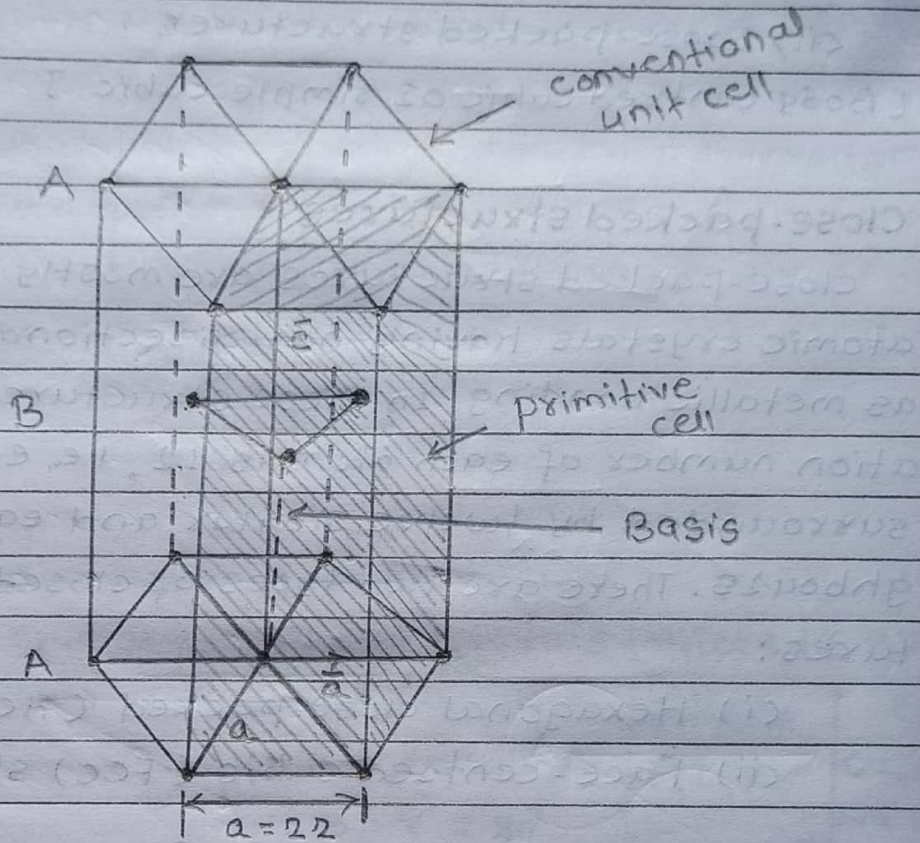 conventional
unit cell
A
c̄
B
primitive
cell
Basis
A
ā
a
a = 2r